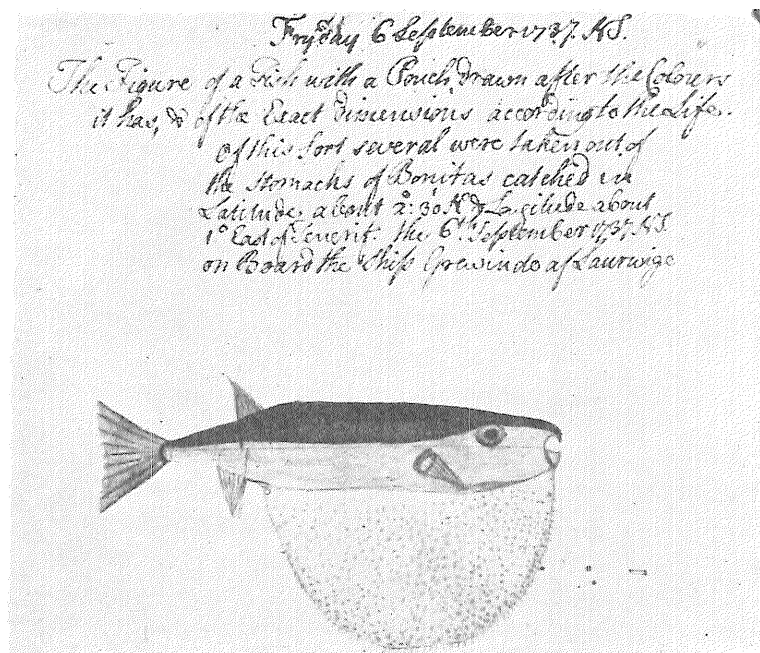 Fryday 6 September 1737. NS.
The Figure of a Fish with a Pouch, drawn after the Colours
it has, & of the Exact Dimensions according to the Life.
Of this sort several were taken out of
the stomachs of Bonitas catched in
Latitude about 2°: 30 N &
about
1° East of Tenerif. the 6th September 1737. NS.
on Board the Ship Grevinde af Laurwige